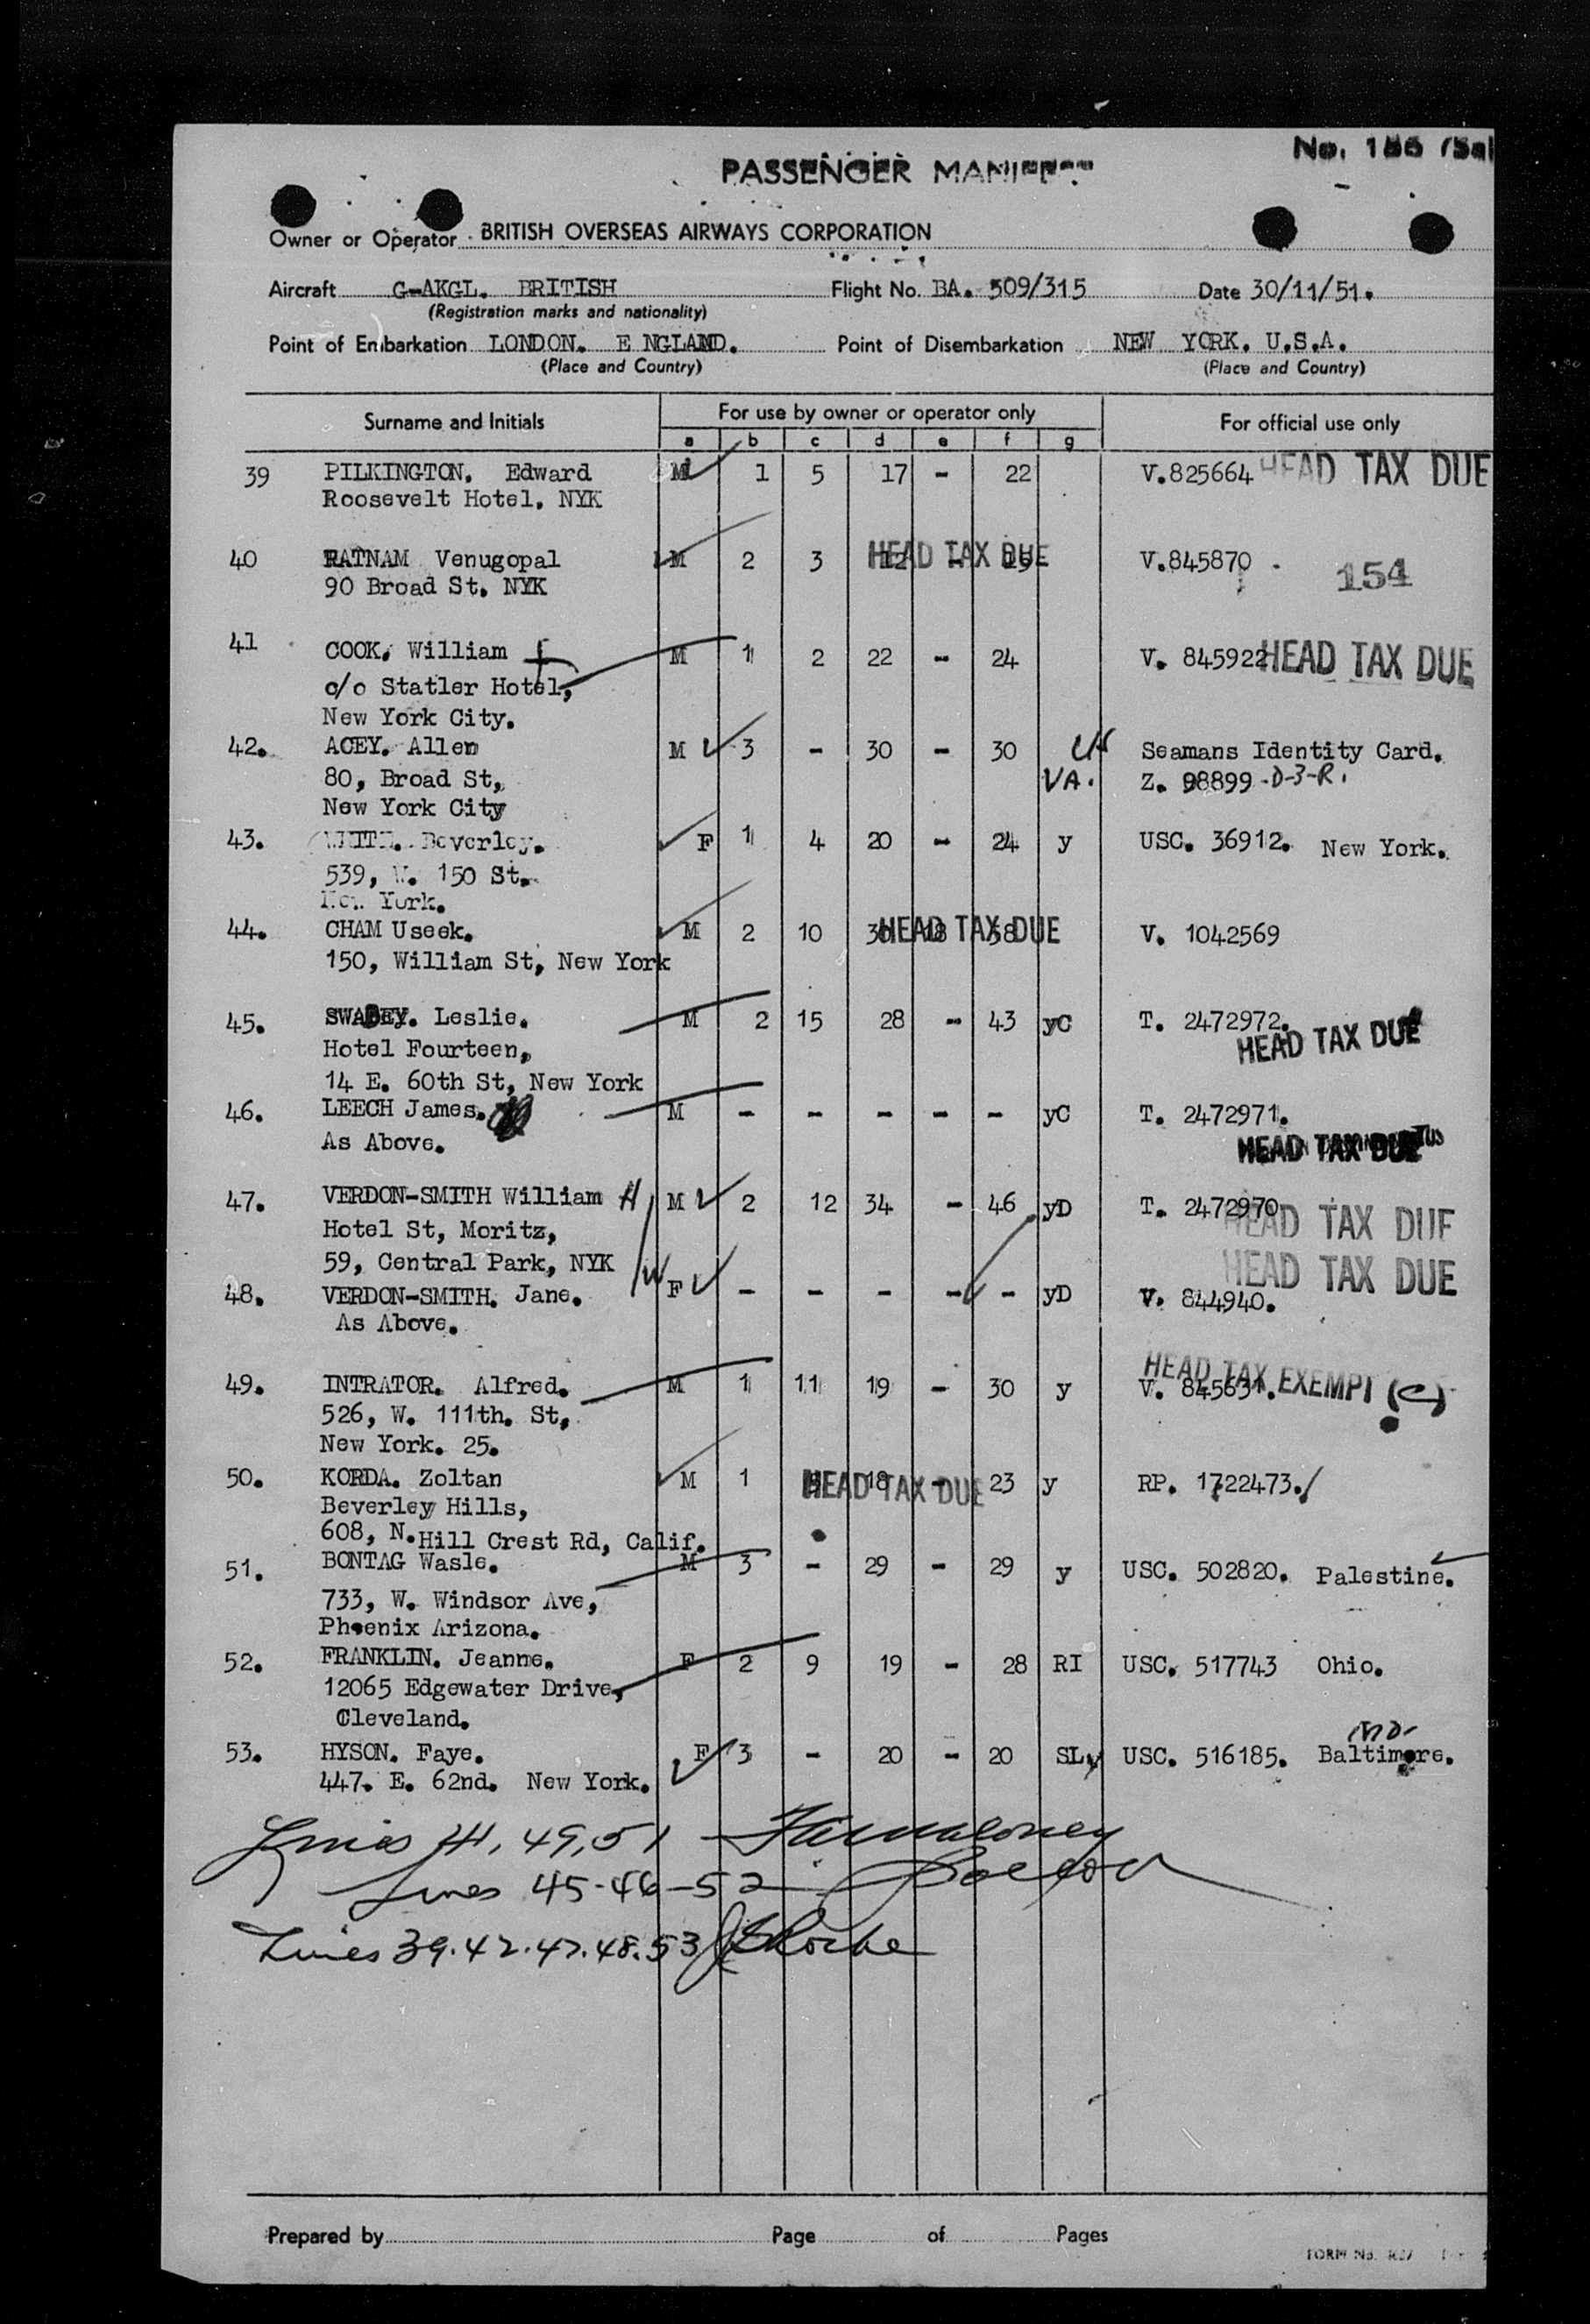 No. 186
PASSENGER MANIFEST
Owner or Operator BRITISH OVERSEAS AIRWAYS CORPORATION
Aircraft G-AKGL. BRITISH Flight No. BA. 509/315 Date 30/11/51.
(Registration marks and nationality)
Point of Embarkation LONDON. E NGLAND. Point of Disembarkation NEW YORK. U.S.A.
(Place and Country) (Place and Country)
Surname and Initials For use by owner or operator only For official use only
a b c d e f g
39 PILKINGTON. Edward M 1 5 17 - 22 V.825664 HEAD TAX DUE
Roosevelt Hotel. NYK
40 RATNAM Venugopal M 2 3 12 - 15 HEAD TAX DUE V.845870
90 Broad St. NYK 154
41 COOK. William M 1 2 22 - 24 V. 845922 HEAD TAX DUE
c/o Statler Hotel,
New York City.
42. ACEY. Allen M 3 - 30 - 30 Seamans Identity Card.
80, Broad St, VA. Z. 98899 -D-3-R.
New York City
43. Beverley. F 1 4 20 - 24 y USC. 36912. New York.
539, W. 150 St.
New York.
44. CHAM Useek. M 2 10 30 18 58 HEAD TAX DUE V. 1042569
150, William St, New York
45. SWABEY. Leslie. M 2 15 28 - 43 yC T. 2472972.
Hotel Fourteen, HEAD TAX DUE
14 E. 60th St, New York
46. LEECH James. M - - - - - yC T. 2472971.
As Above. HEAD TAX DUE
47. VERDON-SMITH William H M 2 12 34 - 46 yD T. 2472970
Hotel St, Moritz, HEAD TAX DUE
59, Central Park, NYK W HEAD TAX DUE
48. VERDON-SMITH. Jane. F - - - - - yD V. 844940.
As Above.
49. INTRATOR. Alfred. M 1 11 19 - 30 y V. 845631. HEAD TAX EXEMPT (C)
526, W. 111th. St,
New York. 25.
50. KORDA. Zoltan M 1 18 - 23 y HEAD TAX DUE RP. 1722473.
Beverley Hills,
608, N. Hill Crest Rd, Calif.
51. BONTAG Wasle. M 3 - 29 - 29 y USC. 502820. Palestine.
733, W. Windsor Ave,
Phoenix Arizona.
52. FRANKLIN. Jeanne. F 2 9 19 - 28 RI USC. 517743 Ohio.
12065 Edgewater Drive,
Cleveland.
53. HYSON. Faye. F 3 - 20 - 20 SL USC. 516185. Baltimore. MD-
447. E. 62nd. New York.
Lines 41, 49, 51
Lines 45-46-52
Lines 39.42.47.48.53
Prepared by Page of Pages
FORM No.